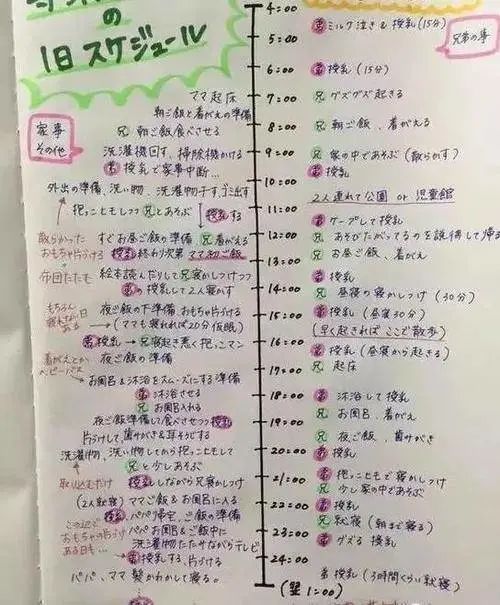 の
1日スケジュール
家事
その他
ママ起床
朝ご飯と着がえの準備
兄 朝ご飯食べさせる
洗濯機回す、掃除機かける
弟 授乳で家事中断…
外出の準備、洗い物、洗濯物干す、ゴミ出す
抱っこもしつつ兄とあそぶ
授乳する
散らかった
おもちゃ片づける
すぐお昼ご飯の準備 兄着がえる
授乳終わり次第 ママ朝ご飯
絵本読んだりして兄寝かしつけつつ
弟の授乳して2人寝かす
もちろん
ある
夜ご飯の下準備 おもちゃ片づける
(ママも寝れれば20分仮眠)
弟授乳 → 兄寝起き悪く抱っこマン
着がえとか
夜ご飯の準備
お風呂&沐浴をスムーズにする準備
弟 沐浴させる
兄 お風呂入れる
夜ご飯準備して食べさせつつ授乳
片づけして、歯みがき&耳そうじする
洗濯物、洗い物してから抱っこもして
兄と少しあそぶ
取り込むだけ
授乳しながら兄寝かしつけ
(2人就寝) ママご飯&お風呂に入る
授乳、パパ帰宅、ご飯の準備
パパお風呂&ご飯中に
洗濯物たたみながらテレビ
おもちゃの片づけ
ある日も…
弟 授乳する、片づける
パパ、ママ 髪かわかして寝る。
4:00
5:00
6:00
7:00
8:00
9:00
10:00
11:00
12:00
13:00
14:00
15:00
16:00
17:00
18:00
19:00
20:00
21:00
22:00
23:00
24:00
(翌 1:00)
兄弟の事
弟 ミルク泣き&授乳(15分)
弟 授乳(15分)
兄 グズグズ起きる
兄 朝ご飯、着がえる
兄 家の中であそぶ(散らかす)
弟 授乳
2人連れて公園 or 児童館
弟 ケープして授乳
兄 あそびたがってるのを説得して帰る
兄 お昼ご飯、着がえ
弟 授乳
兄 昼寝の寝かしつけ(30分)
弟 授乳(昼寝30分)
(早く起きればここで散歩)
弟 授乳(昼寝から起きる)
兄 起床
弟 沐浴して授乳
兄 お風呂、着がえ
兄 夜ご飯、歯みがき
弟 授乳
弟 抱っこもで寝かしつけ
兄 少し家の中であそぶ
弟 授乳
兄 就寝(朝まで寝る)
弟 グズる 授乳
弟 授乳(3時間くらい就寝)